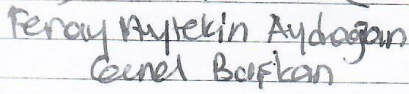 Feray Aytekin Aydoğan
Genel Başkan